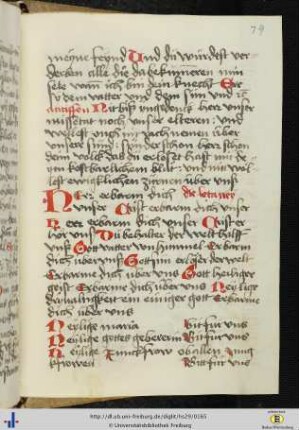 79
meine feynd Und du würdest ver-
derben alle die da bekümmeren min
sele wan ich bin dein knecht Er
v dem vatter und dem sun und
Nit biß yngedenck herr unser
missetat noch unser elteren : und
wellest nach nemen über
unsere sünd : sunder schon herr schon
dem volck das du erlöset hast mit de-
inem kostbarlichen blut : und nit wöl-
lest ewicklichen zürnen über uns
Herr erbarm dich die letaney
unser Crist erbarm dich unser
Herr erbarm dich unser Crist er-
hör uns Du behalter der welt hilff
uns Gott vatter von himmel Erbarm
dich über uns Gott sun erlöser der welt
Erbarme dich über uns Gott heiliger
geist Erbarme dich über uns Heylige
dryualtigkeit ein einiger gott Erbarme
dich über uns
Heylige maria Bit für uns
Heylige gottes gebererin Bitt für uns
Heylige Junckfraw ob allen Jung
kfrowen Bitt für uns
http://dl.ub.uni-freiburg.de/diglit/hs29/0165
© Universitätsbibliothek Freiburg